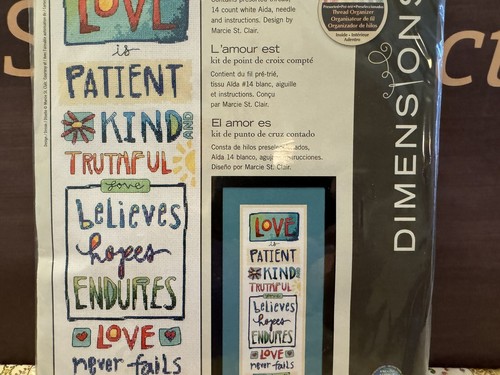 LOVE
is
PATIENT
KIND AND
TRUTHFUL
love
believes
hopes
ENDURES
LOVE
never fails
14 count white Aida, needle
and instructions. Design by
Marcie St. Clair.
L'amour est
kit de point de croix compté
Contient du fil pré-trié,
tissu Aïda #14 blanc, aiguille
et instructions. Conçu
par Marcie St. Clair.
El amor es
kit de punto de cruz contado
Consta de hilos
Aida 14 blanco,
Diseño por Marcie St. Clair.
Thread Organizer
Organisateur de fil
Organizador de hilos
DIMENSIONS
LOVE
is
PATIENT
KIND AND
TRUTHFUL
love
believes
hopes
ENDURES
LOVE
never fails